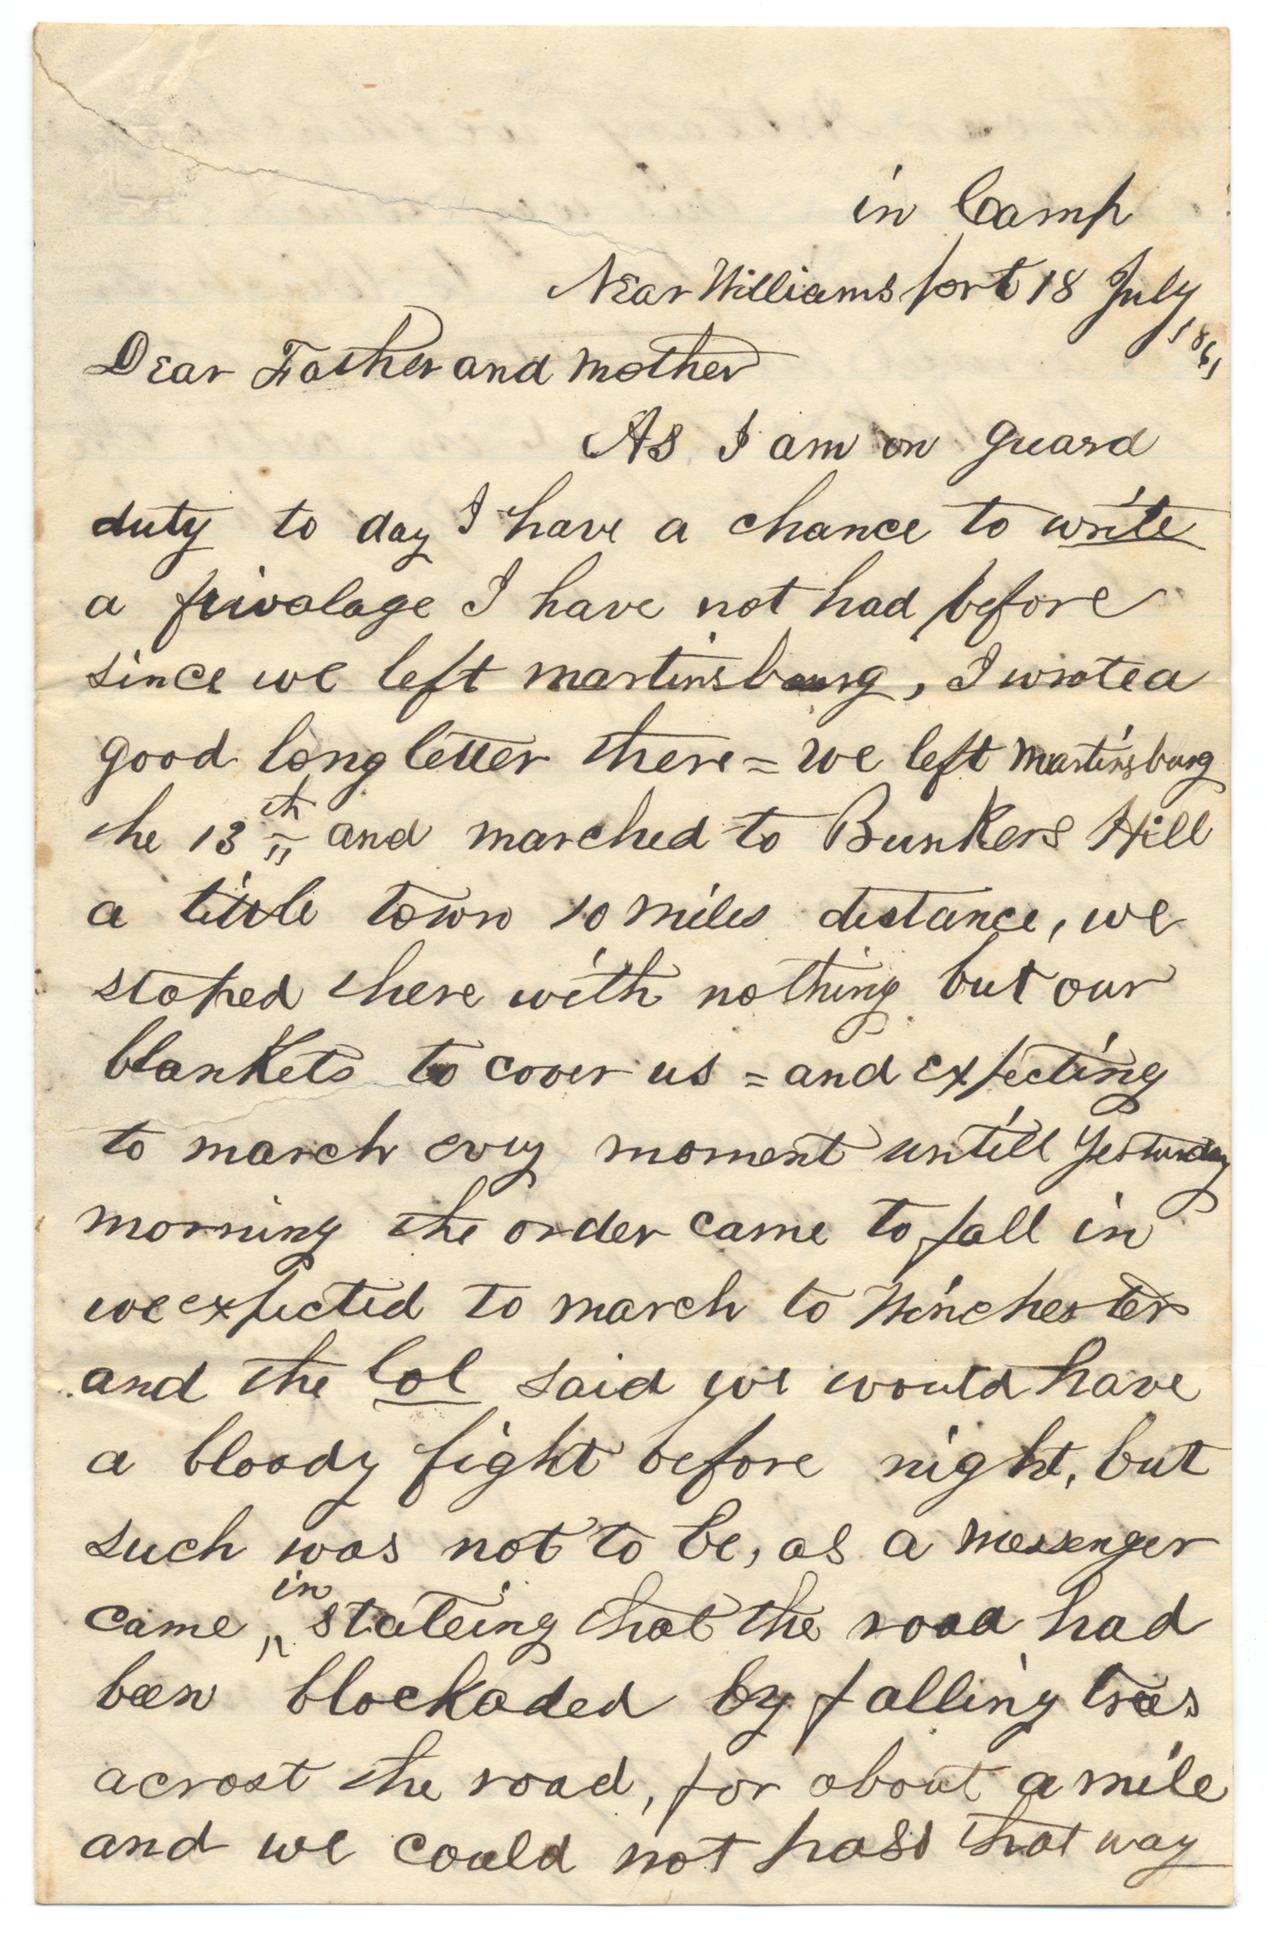 in Camp
Near Williamsport 18 July
1861
Dear Father and Mother
As I am on guard
duty to day I have a chance to write
a privalage I have not had before
since we left martinsburg, I wrote a
good long letter there = we left Martinsburg
the 13th and marched to Bunkers Hill
a little town 10 miles distance, we
stoped there with nothing but our
blankets to cover us = and expecting
to march evry moment untill Yesturday
morning the order came to fall in
we expected to march to Winchester
and the Col said we would have
a bloody fight before night, but
such was not to be, as a messenger
came in stateing that the road had
been blockaded by falling trees
acrost the road, for about a mile
and we could not pass that way